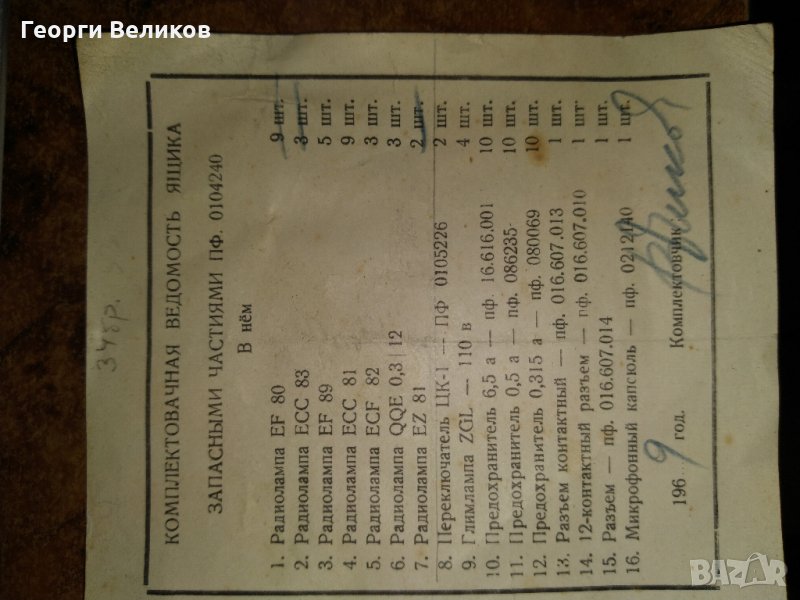 Георги Великов
34 бр.
КОМПЛЕКТОВАЧНАЯ ВЕДОМОСТЬ ЯЩИКА
ЗАПАСНЫМИ ЧАСТИЯМИ ПФ. 0104240
В нём
1. Радиолампа EF 80 9 шт.
2. Радиолампа ECC 83 3 шт.
3. Радиолампа EF 89 5 шт.
4. Радиолампа ECC 81 9 шт.
5. Радиолампа ECF 82 3 шт.
6. Радиолампа QQE 0,3|12 3 шт.
7. Радиолампа EZ 81 2 шт.
8. Переключатель ЦК-1 — ПФ 0105226 2 шт.
9. Глимлампа ZGL — 110 в 4 шт.
10. Предохранитель 6,5 а — пф. 16.616.001 10 шт.
11. Предохранитель 0,5 а — пф. 086235- 10 шт.
12. Предохранитель 0,315 а — пф. 080069 10 шт.
13. Разъем контактный — пф. 016.607.013 1 шт.
14. 12-контактный разъем — пф. 016.607.010 1 шт.
15. Разъем — пф. 016.607.014 1 шт.
16. Микрофонный капсюль — пф. 0212140 1 шт.
1969 год. Комплектовчик
BAZAR